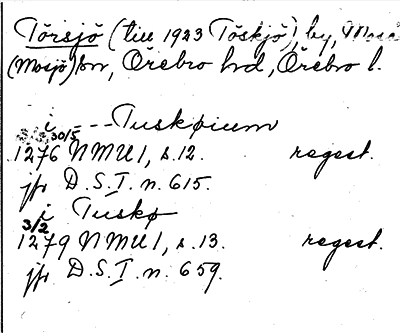 Törsjö (till 1923 Töskjö), by, Mosås
(Mosjö) sn, Örebro hd, Örebro l.
i --- Tuskøium
30/5
1276 NMU 1, s. 12. regest.
jfr D.S.I. n. 615.
i Tuskø
3/2
1279 NMU 1, s. 13. regest.
jfr D.S.I. n. 659.